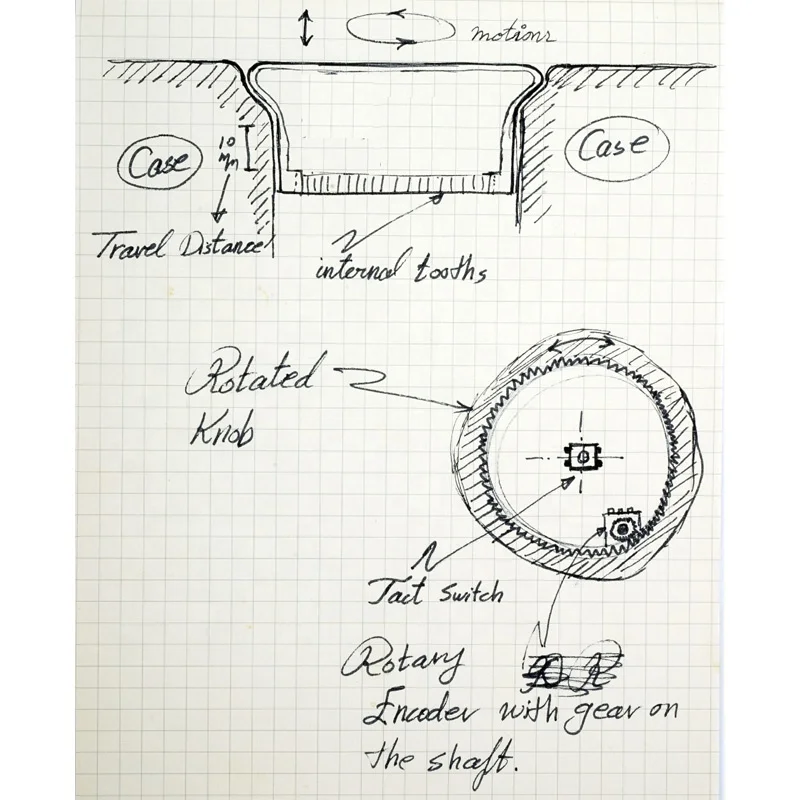 motions
Case
10
mm
Case
Travel Distance
internal tooths
Rotated
Knob
Tact Switch
Rotary
Encoder with gear on
the shaft.